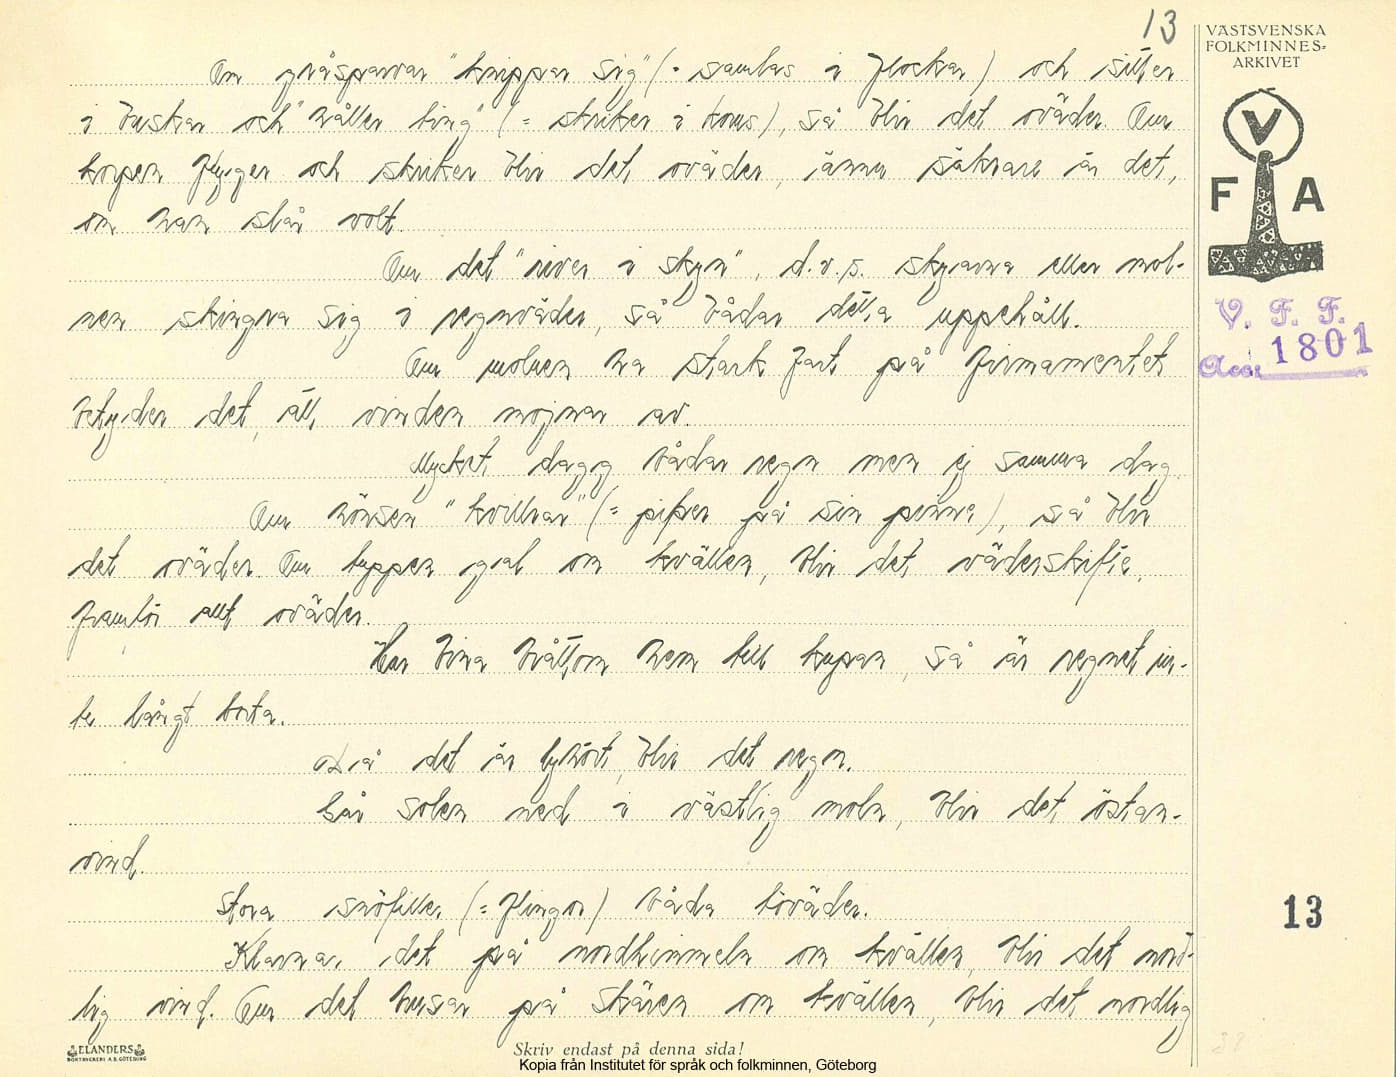 13
VÄSTSVENSKA
FOLKMINNES-
ARKIVET
V
F A
V. F. F.
Acc. 1801
Om gråsparvar "knippar sig" (= samlas i flockar) och sitter
i buskar och "håller ting" (= skriker i kors), så blir det oväder. Om
korpen flyger och skriker blir det oväder, ännu säkrare är det,
om han slår volt.
Om det "river i skyn", d.v.s. skyarna eller mol-
nen skingra sig i regnväder, så bådar detta uppehåll.
Om molnen ha stark fart på firmamentet
betyder det, att vinden mojnar av.
Mycket dagg bådar regn men ej samma dag.
Om hönsen "kvillrar" (= piper på sin pinne), så blir
det oväder. Om tuppen gal om kvällen, blir det väderskifte,
framför allt oväder.
Har bina bråttom hem till kupan, så är regnet in-
te långt borta.
Då det är lyhört, blir det regn.
Går solen ned i västlig moln, blir det östan-
vind.
Stora snöfillor (= flingor) båda töväder.
Klarnar det på nordhimmeln om kvällen, blir det nord-
lig vind. Om det brusar på skären om kvällen, blir det nordlig
13
ELANDERS
BOKTRYCKERI A.B. GÖTEBORG
Skriv endast på denna sida!
Kopia från Institutet för språk och folkminnen, Göteborg